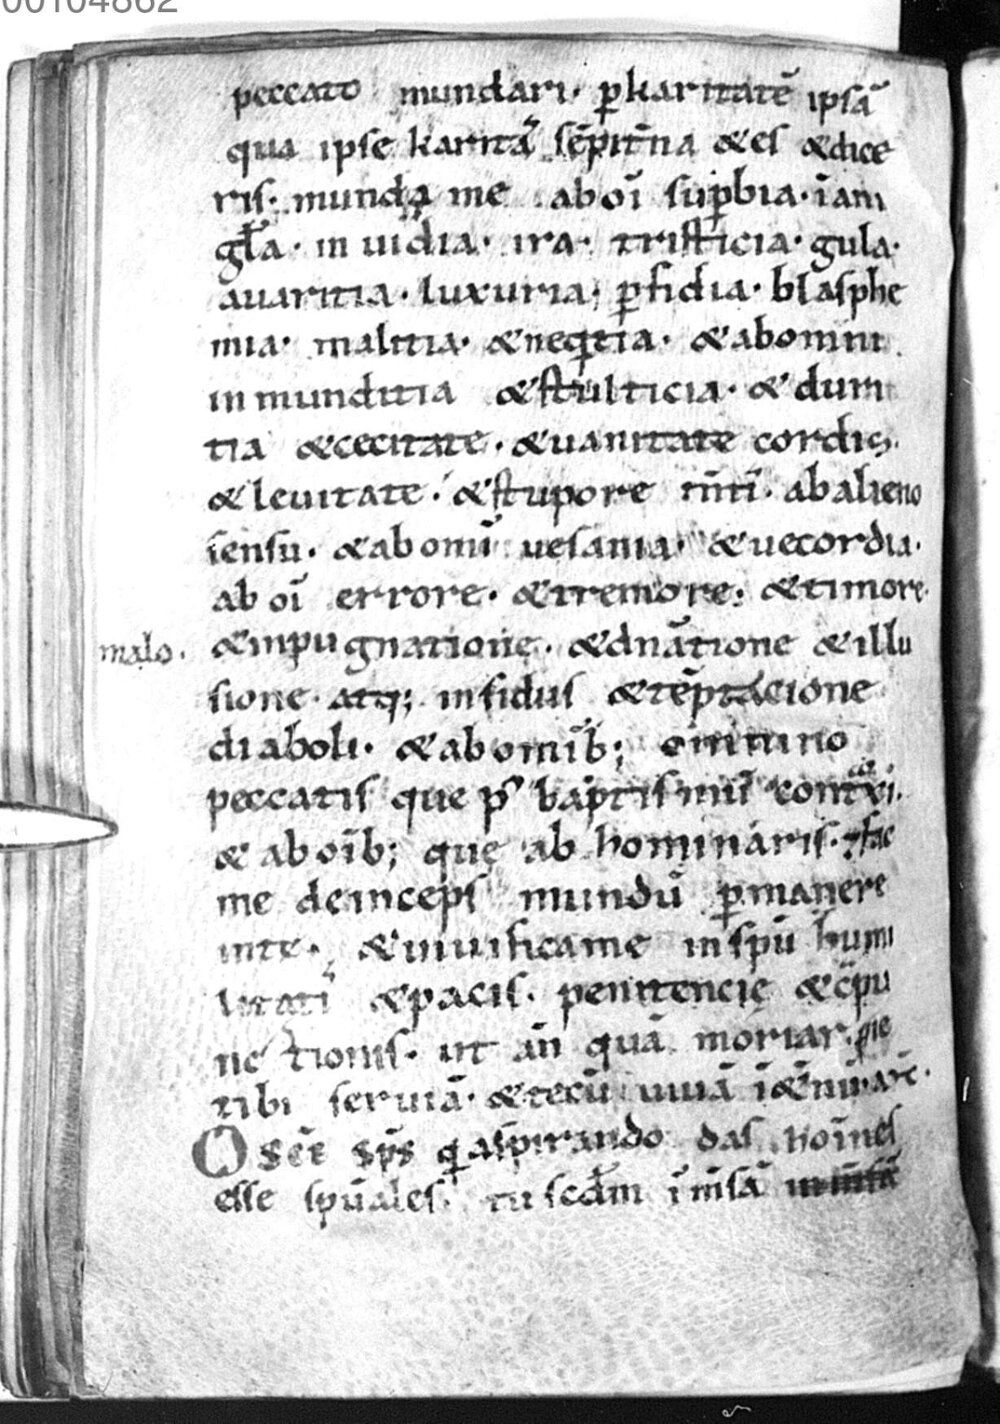 00104862
peccato mundari· ꝑkaritatē ipsā
qua ipse karitaˢ sēpit̄na &es &dice
ris· munda me ab oī suꝑbia· iani
gl̄a· in uidia· ira· tristicia· gula·
auaritia· luxuria· ꝑfidia· blasphe
mia· malitia· &neqͥtia· &abomni
inmunditia &stulticia· &duri
tia &cecitate· &uanitate cordis·
&leuitate· &stupore m̄ti· abalieno
sensu· &abomī uesania· &uecordia·
ab oī errore· &tremore· &timore·
malo· &inpugnatione· &dnātione &illu
sione· atq; insidiis &tēptacione
diaboli· &abomīb; omnino
peccatis que p᷒ baptismū contᵃxi·
& aboīb; que ab hominaris· ⁊fac
me deinceps mundū ꝑmanere
inte· &uiuificame inspū humi
litatiˢ &pacis· penitencię &c̄pu
nc tionis· ut an̄ quā moriar· pie
tibi seruiā· &tecū uiuā ī&̄nū·
O sc̄e sp̄s qͥ aspirando das hoīnes
esse spūales· tu scd̄m īm̄sā